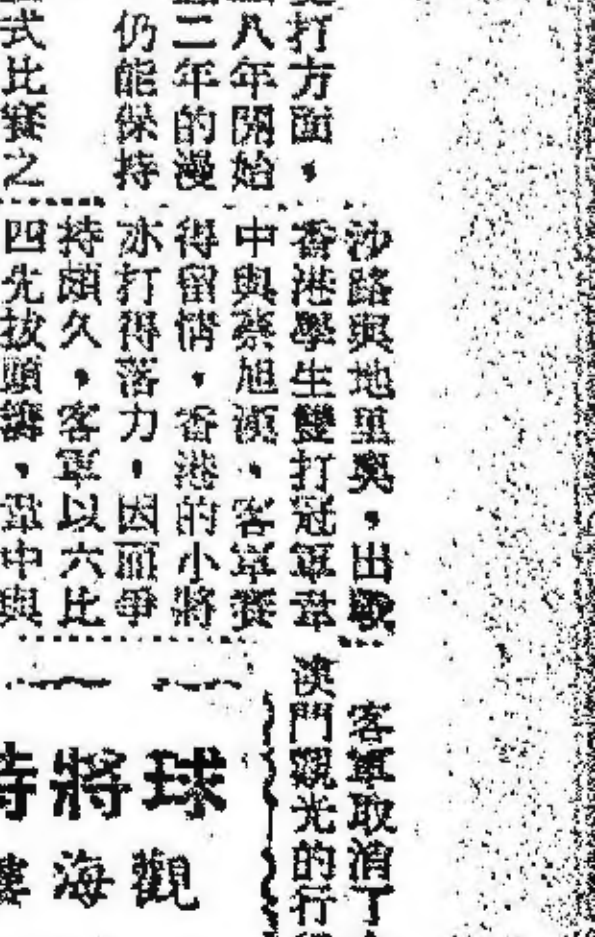 打方面，
八年開始
二年的漫
仍能保持
式比賽之
沙路與地里奧，出戰
香港學生雙打冠軍韋
中與蔡旭漢，客軍賽
得留情，香港的小將
亦打得落力，因而爭
持頗久，客軍以六比
四先拔頭籌，韋中與
客軍取消了
澳門觀光的行
球將
觀海樓